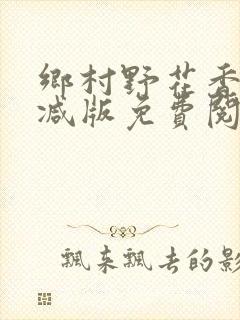 鄉村野花香
减版免費閱
飄來飄去的影